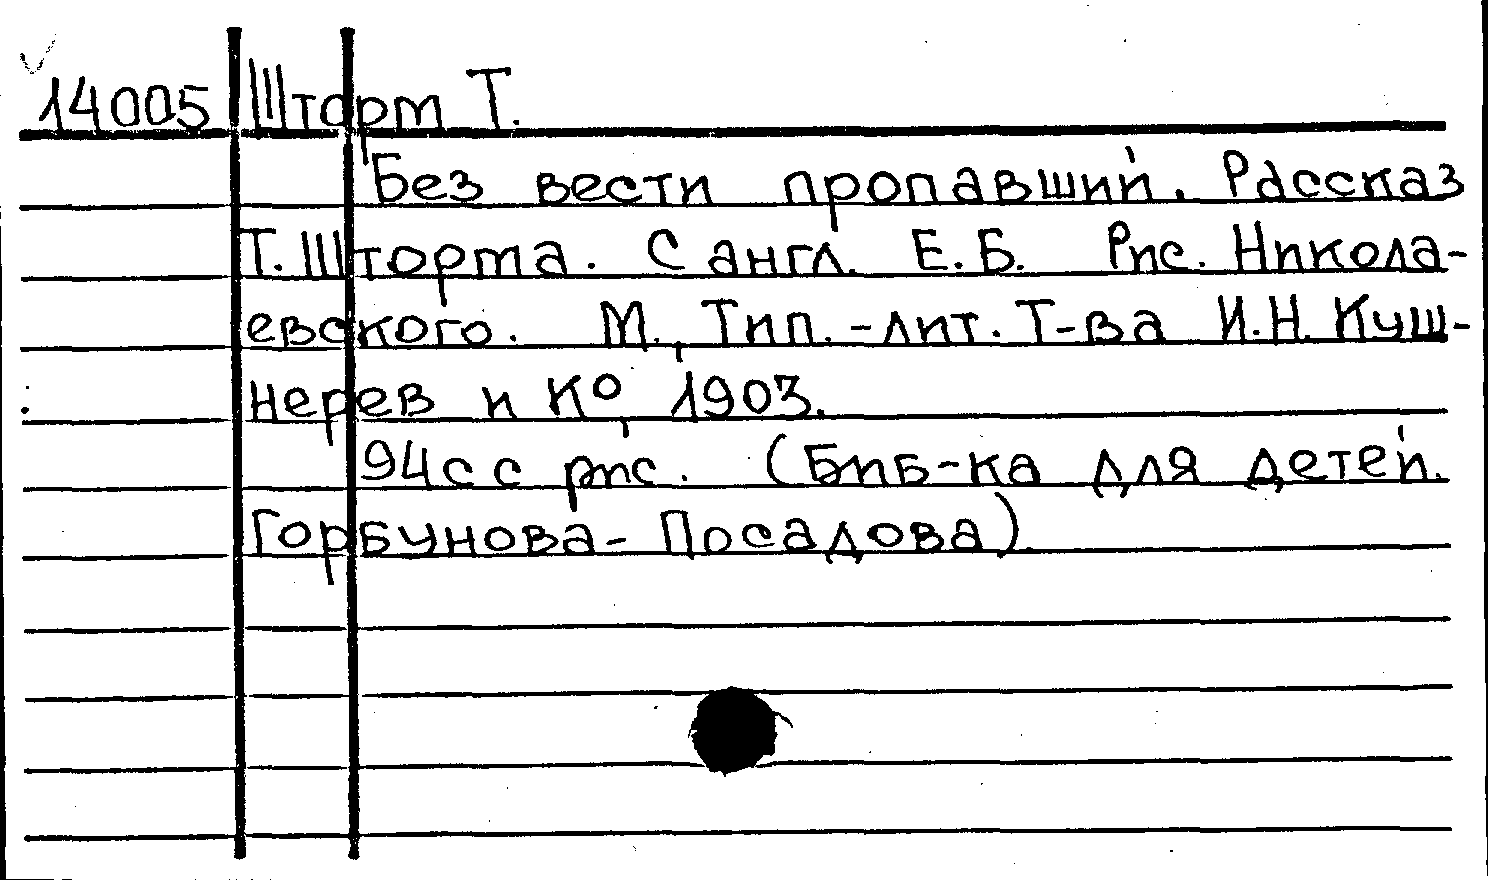 14005 Шторм Т.
Без вести пропавший. Рассказ
Т. Шторма. С англ. Е.Б. Рис. Никола-
евского. М., Тип.-лит. Т-ва И.Н. Куш-
нерев и К⁰, 1903.
94с с рис. (Биб-ка для детей.
Горбунова-Посадова)